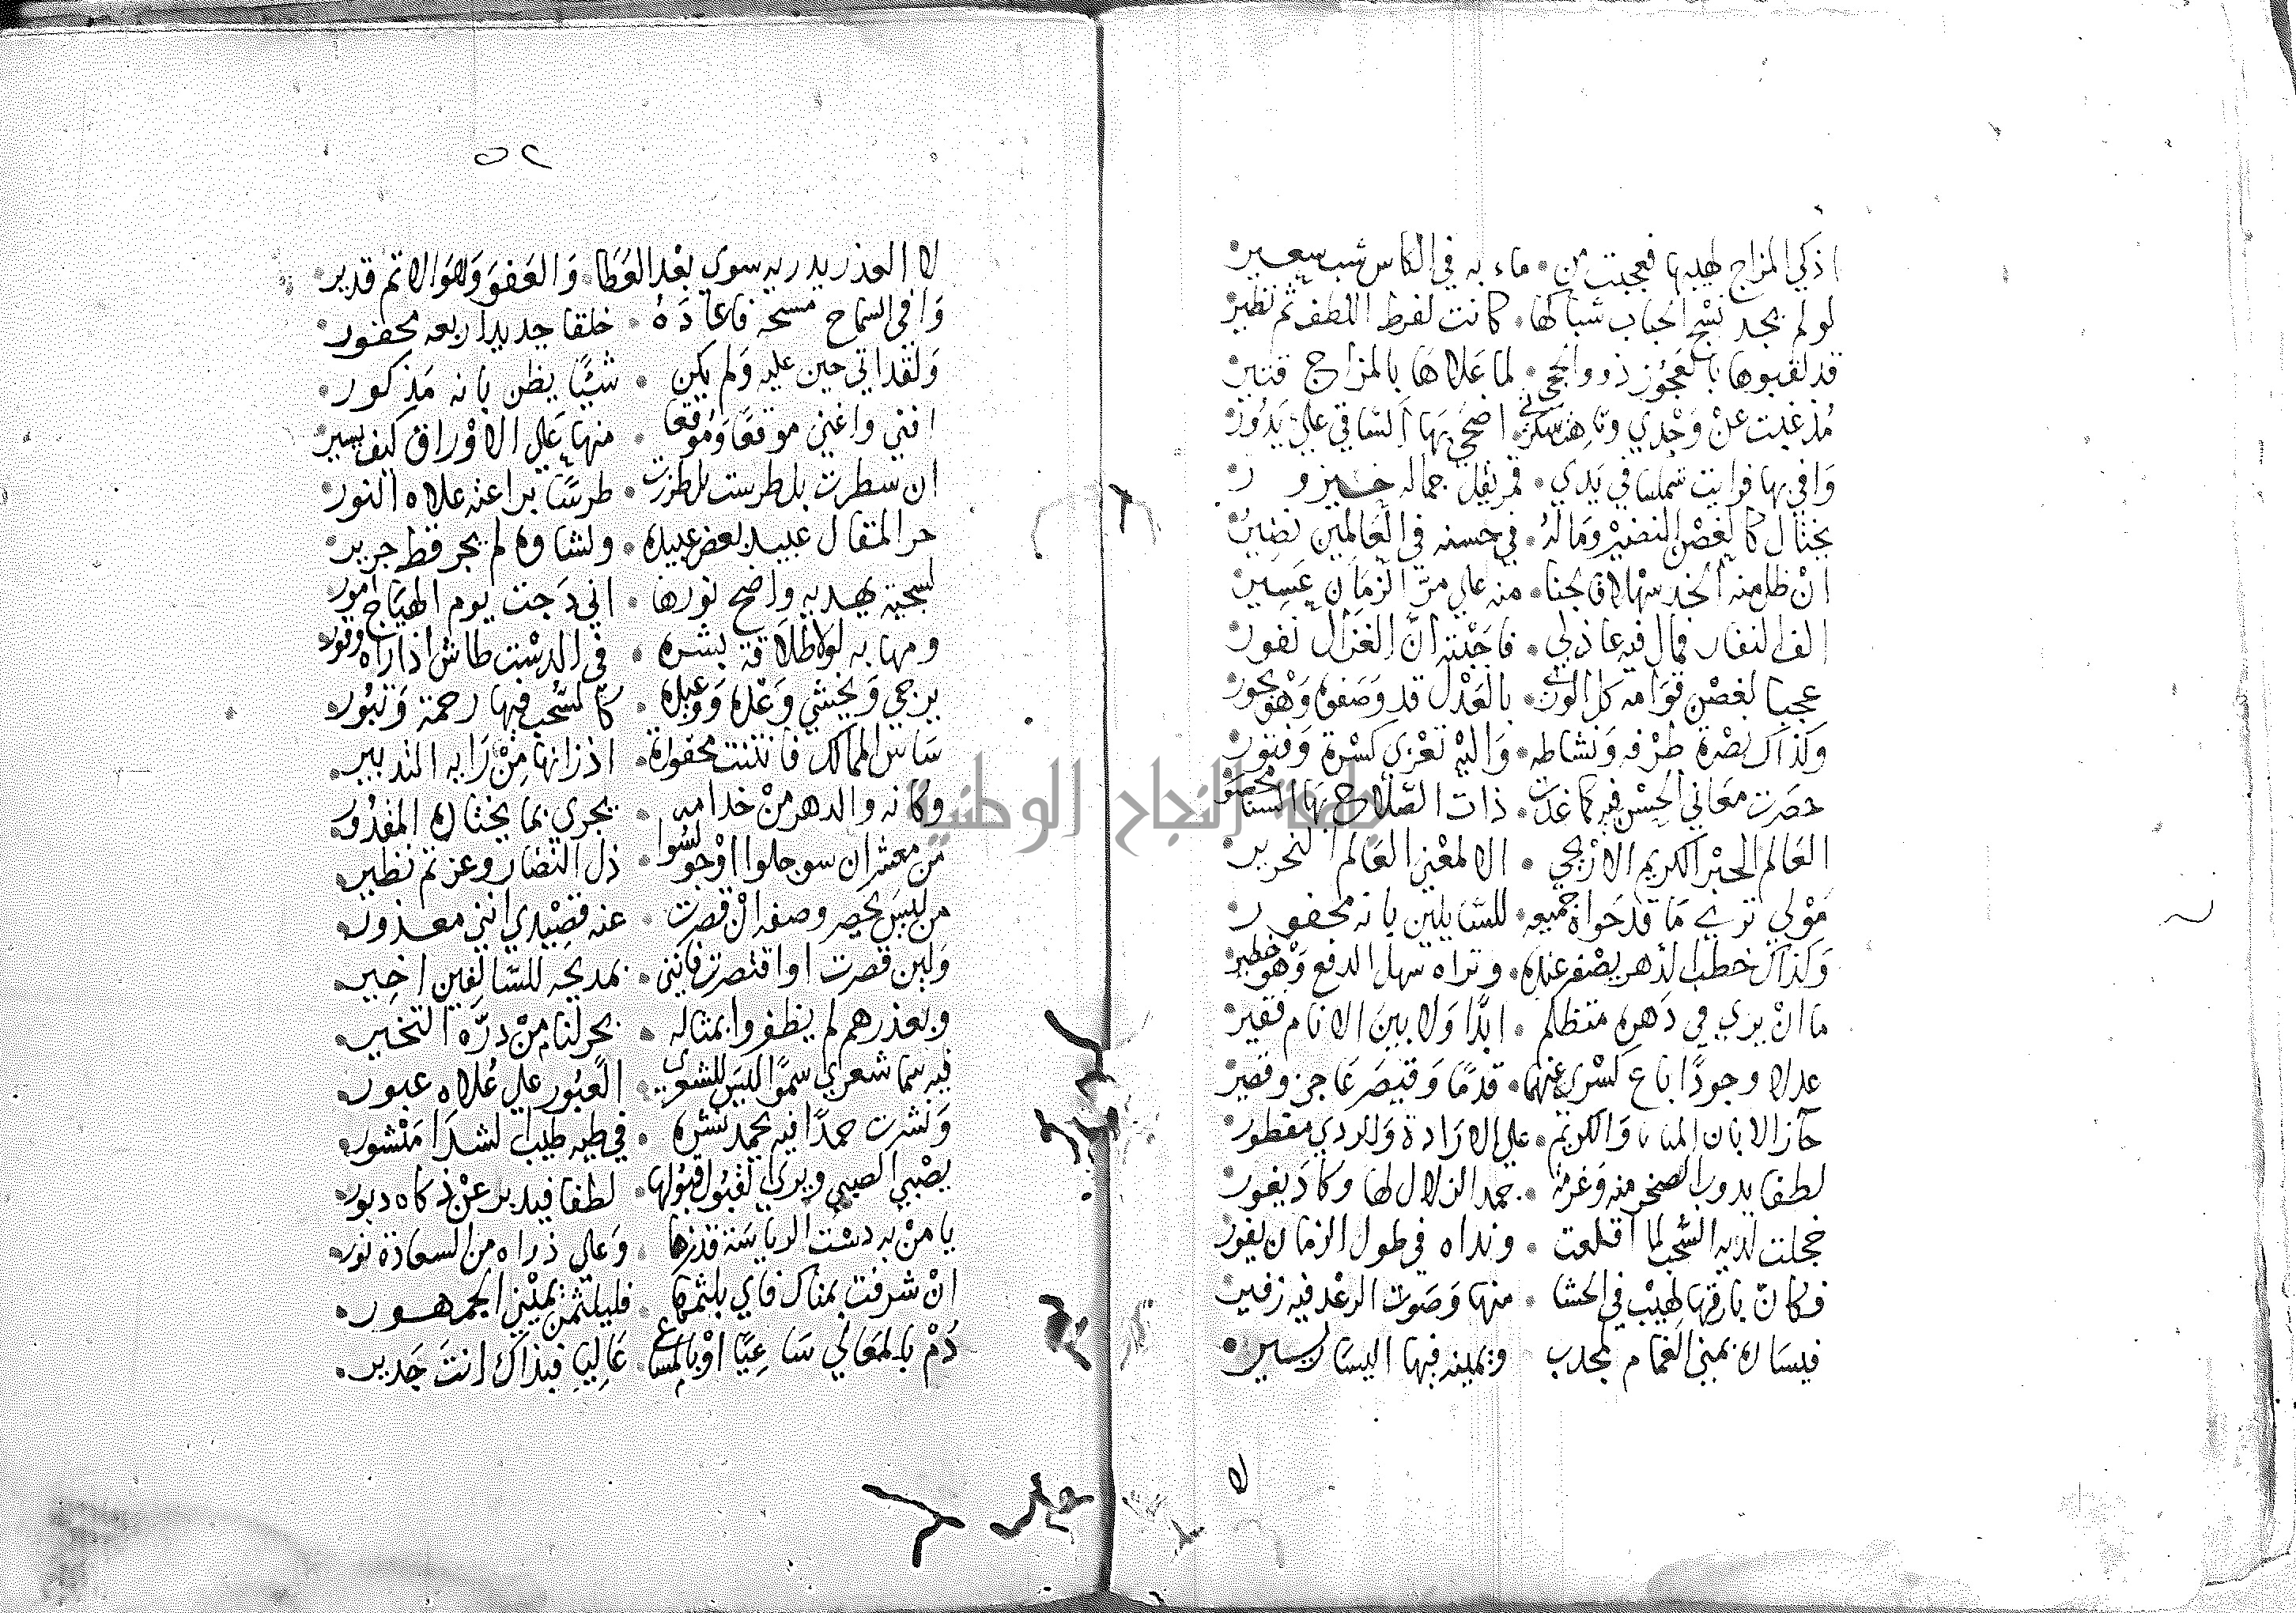 اذكي المزاج لهيبها فعجبت من . ماء به في الكاس شب سعير
لو لم يجد نسج الحباب شباكها . كانت لفرط اللطف ثم تطير
قد لقبوها بالعجوز ذووا الحجي . لما علاها بالمزاج قتير
مذ غبت عن وجدي اضحي بها الساقي علي يدور
وافي بها فرايت شمسا في يدي . قمر جماله
يختال كالغصن النضير وماله . في حسنه في العالمين نضير
ان ظل منه الخد سهلا فالجنا . منه علي مر الزمان عسير
الف النفار فمال فيه عاذلي . فاجبته ان الغزال نفور
عجبا لغصن قوامه كل الوري . بالعدل قد وصفوه وهو يجور
وكذاك نصرة طرفه ونشاطه . واليه تعزي كسرة وفتور
حصرت معاني الحسن فيه كما غدت . ذات الصلاح بها
العالم الحبر الكريم الاريحي . الالمعي العالم النحرير
مولي تري ما قد حواه جميعه . للسايلين بانه محفور
وكذاك خطب الدهر يصغر عنده . وتراه سهل الدفع وهو خطير
ما ان يري في دهره متظلم . ابدا ولا بين الانام فقير
عدلا وجودا باع كسري عنهما . قدما وقيصر عاجز وقصير
علي الارادة والردي مقطور
لطفا يذوب الصخر منه وعزمة . جمد الزلال لها وكاد يغور
خجلت لديه السحب لما اقلعت . ونداه في طول الزمان يفور
فكان بارقها لهيب في الحشا . منها وصوت الرعد فيه زفير
فيساره يمني الغمام لمجدب . ويمينه فيها اليسار يسير
لا
٥٢
لا العذر يدريه سوي بعد العطا . والعفو وهو الاتم قدير
وافي السماح مسخه فاعاده . خلقا جديدا ربعه محفور
ولقد اتي حين عليه ولم يكن . شيئا يظن بانه مذكور
افني واغني موقعا وموقعا . منها علي الاوراق كيف يسير
ان سطرت بل طرست بل طرزت . طرسا براعته علاه النور
حر المقال عبيد بعض عبيده . ولشاوه لم يجر قط جرير
لسجية يهديه واضح نورها . اني دجت يوم الهياج امور
ومهابه لولا طلاقة بشره . في الدست طاش اذا راه وقور
يرجي ويخشي وعده ووعيده . كالسحب فيها رحمة وثبور
ساس الممالك فانثنت محفوفة . اذ زانها من رايه التدبير
وكانه والدهر من خدامه . يجري بما يختاره المقدور
من معشر ان سوجلوا او جولسوا . ذل النضار وعز ثم نظير
من ليس يحصر وصفه ان قصرت . عنه قصيدي انني معذور
ولين قصرت او اقتصرت فانني . بمديحه للسالفين اخير
وبعذرهم لم يظفروا بمثاله . بحر لنا من دره التخير
فيه سما شعري سموا ليس للشعري . العبور علي علاه عبور
ونشرت حمدا فيه يحمد نشره . في طيه طيب الشذا منثور
يصبي الصبي ويري القبول قبولها . لطفا فيدبر عن ذكاه دبور
يا من به دست الرياسة قدزها . وعلي ذراه من السعادة نور
ان شرفت يمناك فاي بلثمها . فليلثمن يمين الجمهور
دم بالمعالي ساعيا او بالمساع . عاليا فبذاك انت جدير
جامعة النجاح الوطنية